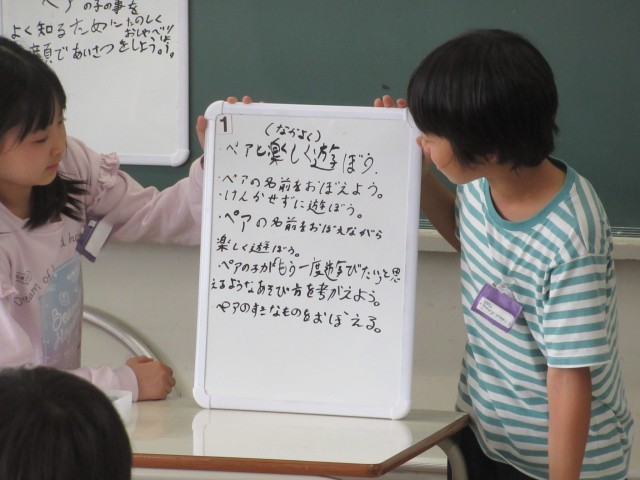 ペアの子の事を
よく知るためにたのしく
おしゃべり
顔であいさつをしよう。
1
(なかよく)
・ペアと楽しく遊ぼう。
・ペアの名前をおぼえよう。
・けんかせずに遊ぼう。
・ペアの名前をおぼえながら
楽しく遊ぼう。
・ペアの子が「もう一度遊びたい」と思
えるようなあそび方を考がえよう。
・ペアのすきなものをおぼえる。
Dream of